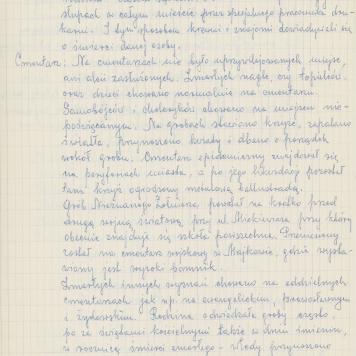 słupach w całym mieście przez specjalnego pracownika dru-
karni. I tym sposobem krewni i znajomi dowiadywali się
o śmierci danej osoby.
Cmentarz: Na cmentarzach nie było uprzywilejowanych miejsc,
ani alei zasłużonych. Zmarłych nagle czy topielców
oraz dzieci chowano normalnie na cmentarzu.
Samobójców i choleryków chowano na miejscu nie-
poświęcanym. Na grobach stawiano krzyże, zapalano
światła, przynoszono kwiaty i dbano o porządek
wokół grobu. Cmentarz epidemiczny znajdował się
na peryferiach miasta, a po jego likwidacji pozostał
tam krzyż ogrodzony metalową balustradą.
Grób Nieznanego Żołnierza powstał na krótko przed
drugą wojną światową przy ul. Mickiewicza przy której
obecnie znajduje się szkoła powszechna. Przeniesiony
został na cmentarz wojskowy w Majkowie, gdzie wysta-
wiony jest wysoki pomnik.
Zmarłych innych wyznań chowano na oddzielnych
cmentarzach jak np. na ewangelickim, prawosławnym
i żydowskim. Rodzina odwiedzała groby często,
poza świętami kościelnymi także w dniu imienin,
w rocznicę śmierci zmarłego - wtedy przynoszono